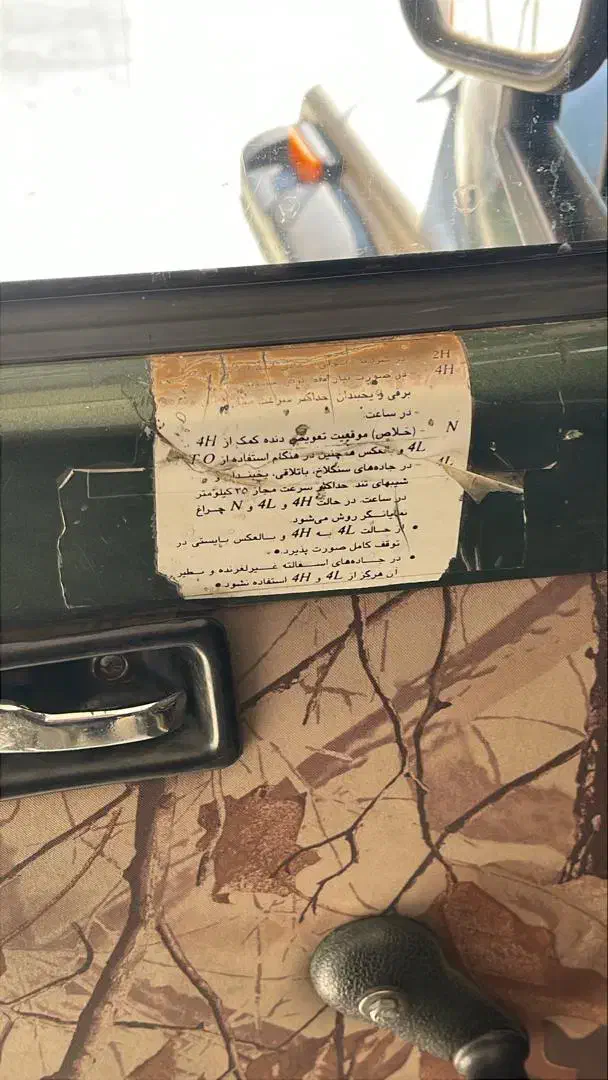 2H
4H در صورت نیاز
برفی و یخبندان حداکثر سرعت
در ساعت.
N - (خلاص) موقعیت تعویض دنده کمک از 4H
4L و بالعکس همچنین در هنگام استفاده از P.T.O
4L در جاده‌های سنگلاخ، باتلاقی، یخبندان و
شیبهای تند. حداکثر سرعت مجاز ۲۵ کیلومتر
در ساعت. در حالت 4H و 4L و N چراغ
نمایانگر روش می‌شود.
• از حالت 4L به 4H و بالعکس بایستی در
توقف کامل صورت پذیرد.
• در جاده‌های اسفالته غیرلغزنده و نظیر
آن هرگز از 4L و 4H استفاده نشود.